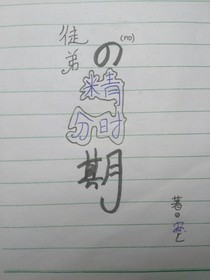 徒弟
の(no)
精
分时
期
著: